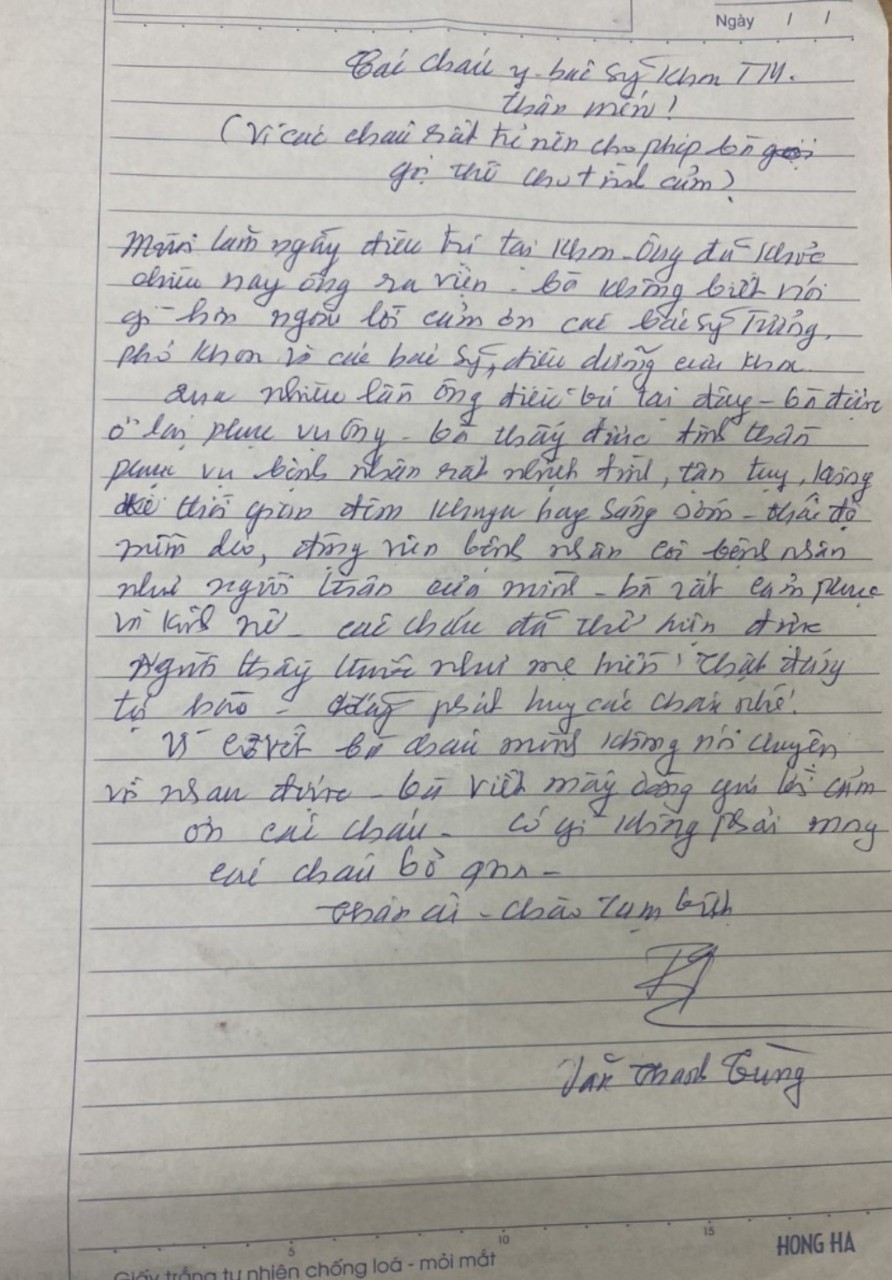 Ngày / /
Các cháu y-bác sỹ khoa TM.
thân mến!
(Vì các cháu rất trẻ nên cho phép bà gọi
gọi thế cho tình cảm)
Mười lăm ngày điều trị tại khoa - Ông đã khỏe
chiều nay ông ra viện - bà không biết nói
gì hơn ngoài lời cảm ơn các bác sỹ Trưởng,
phó khoa và các bác sỹ, điều dưỡng của khoa.
Qua nhiều lần ông điều trị tại đây - bà được
ở lại phục vụ ông - bà thấy được tinh thần
phục vụ bệnh nhân rất nhiệt tình, tận tụy, không
kể thời gian đêm khuya hay sáng sớm - thái độ
mềm dẻo, động viên bệnh nhân coi bệnh nhân
như người thân của mình - bà rất cảm phục
và kính nể - các cháu đã thể hiện được
Người thầy thuốc như mẹ hiền! Thật đáng
tự hào - phát huy các cháu nhé!
Vì covit bà cháu mình không nói chuyện
với nhau được - bà viết mấy dòng gửi lời cảm
ơn các cháu - có gì không phải mong
các cháu bỏ qua -
Thân ái - chào tạm biệt
Thanh Tùng
5 10 15
HONG HA
Giấy trắng tự nhiên chống loá - mỏi mắt